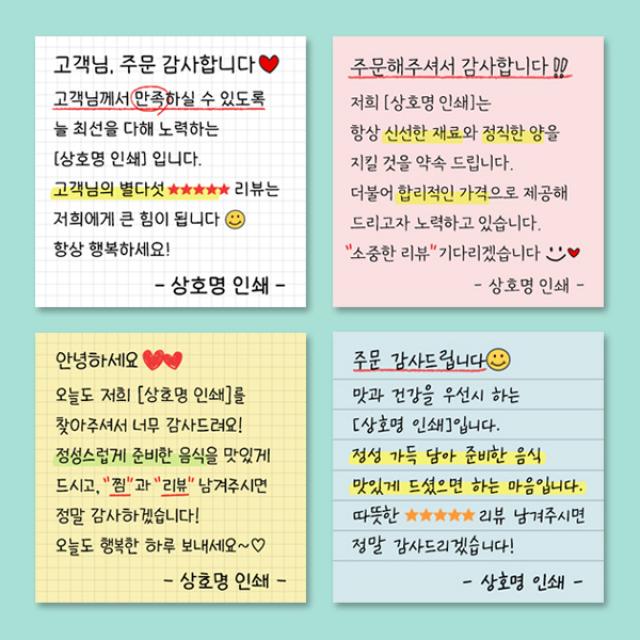 고객님, 주문 감사합니다❤
고객님께서 만족하실 수 있도록
늘 최선을 다해 노력하는
[상호명 인쇄] 입니다.
고객님의 별다섯★★★★★ 리뷰는
저희에게 큰 힘이 됩니다 🙂
항상 행복하세요!
- 상호명 인쇄 -
주문해주셔서 감사합니다!!
저희 [상호명 인쇄]는
항상 신선한 재료와 정직한 양을
지킬 것을 약속 드립니다.
더불어 합리적인 가격으로 제공해
드리고자 노력하고 있습니다.
"소중한 리뷰"기다리겠습니다 🙂♥
- 상호명 인쇄 -
안녕하세요 ❤❤
오늘도 저희 [상호명 인쇄]를
찾아주셔서 너무 감사드려요!
정성스럽게 준비한 음식을 맛있게
드시고, "찜"과 "리뷰" 남겨주시면
정말 감사하겠습니다!
오늘도 행복한 하루 보내세요~♡
- 상호명 인쇄 -
주문 감사드립니다🙂
맛과 건강을 우선시 하는
[상호명 인쇄]입니다.
정성 가득 담아 준비한 음식
맛있게 드셨으면 하는 마음입니다.
따뜻한 ★★★★★ 리뷰 남겨주시면
정말 감사드리겠습니다!
- 상호명 인쇄 -